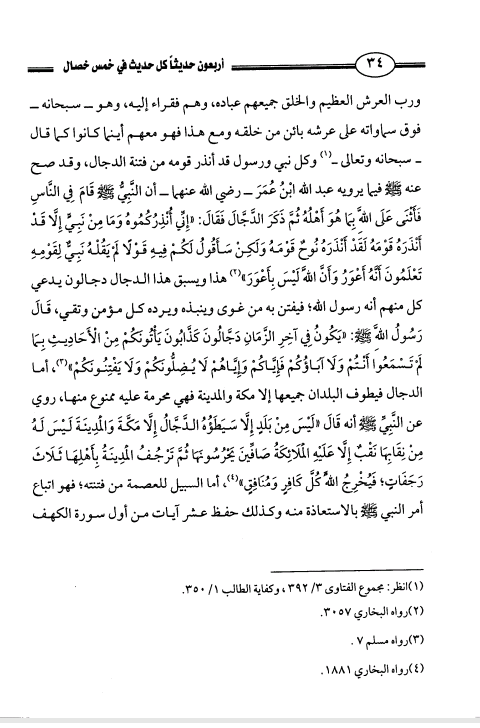 ٣٤
أربعون حديثاً كل حديث في خمس خصال
ورب العرش العظيم والخلق جميعهم عباده، وهم فقراء إليه، وهو ــ سبحانه ــ
فوق سماواته على عرشه بائن من خلقه ومع هذا فهو معهم أينما كانوا كما قال
ــ سبحانه وتعالى ــ(١) وكل نبي ورسول قد أنذر قومه من فتنة الدجال، وقد صح
عنه ﷺ فيما يرويه عبد الله ابْنُ عُمَرَ ــ رضي الله عنهما ــ أن النَّبِيُّ ﷺ قَامَ فِي النَّاسِ
فَأَثْنَى عَلَى اللَّهِ بِمَا هُوَ أَهْلُهُ ثُمَّ ذَكَرَ الدَّجَّالَ فَقَالَ: «إِنِّي أُنْذِرُكُمُوهُ وَمَا مِنْ نَبِيٍّ إِلَّا قَدْ
أَنْذَرَهُ قَوْمَهُ لَقَدْ أَنْذَرَهُ نُوحٌ قَوْمَهُ وَلَكِنْ سَأَقُولُ لَكُمْ فِيهِ قَوْلًا لَمْ يَقُلْهُ نَبِيٌّ لِقَوْمِهِ
تَعْلَمُونَ أَنَّهُ أَعْوَرُ وَأَنَّ اللَّهَ لَيْسَ بِأَعْوَرَ»(٢) هذا ويسبق هذا الدجال دجالون يدعي
كل منهم أنه رسول الله؛ فيفتن به من غوى وينبذه ويرده كل مؤمن وتقي، قَالَ
رَسُولُ اللَّهِ ﷺ: «يَكُونُ فِي آخِرِ الزَّمَانِ دَجَّالُونَ كَذَّابُونَ يَأْتُونَكُمْ مِنْ الْأَحَادِيثِ بِمَا
لَمْ تَسْمَعُوا أَنْتُمْ وَلَا آبَاؤُكُمْ فَإِيَّاكُمْ وَإِيَّاهُمْ لَا يُضِلُّونَكُمْ وَلَا يَفْتِنُونَكُمْ»(٣)، أما
الدجال فيطوف البلدان جميعها إلا مكة والمدينة فهي محرمة عليه ممنوع منها، روي
عن النَّبِيِّ ﷺ أنه قَالَ «لَيْسَ مِنْ بَلَدٍ إِلَّا سَيَطَؤُهُ الدَّجَّالُ إِلَّا مَكَّةَ وَالْمَدِينَةَ لَيْسَ لَهُ
مِنْ نِقَابِهَا نَقْبٌ إِلَّا عَلَيْهِ الْمَلَائِكَةُ صَافِّينَ يَحْرُسُونَهَا ثُمَّ تَرْجُفُ الْمَدِينَةُ بِأَهْلِهَا ثَلَاثَ
رَجَفَاتٍ؛ فَيُخْرِجُ اللَّهُ كُلَّ كَافِرٍ وَمُنَافِقٍ»(٤)، أما السبيل للعصمة من فتنته؛ فهو اتباع
أمر النبي ﷺ بالاستعاذة منه وكذلك حفظ عشر آيات من أول سورة الكهف
(١)انظر: مجموع الفتاوى ٣/ ٣٩٢، وكفاية الطالب ١/ ٣٥٠.
(٢)رواه البخاري ٣٠٥٧.
(٣)رواه مسلم ٧.
(٤)رواه البخاري ١٨٨١.